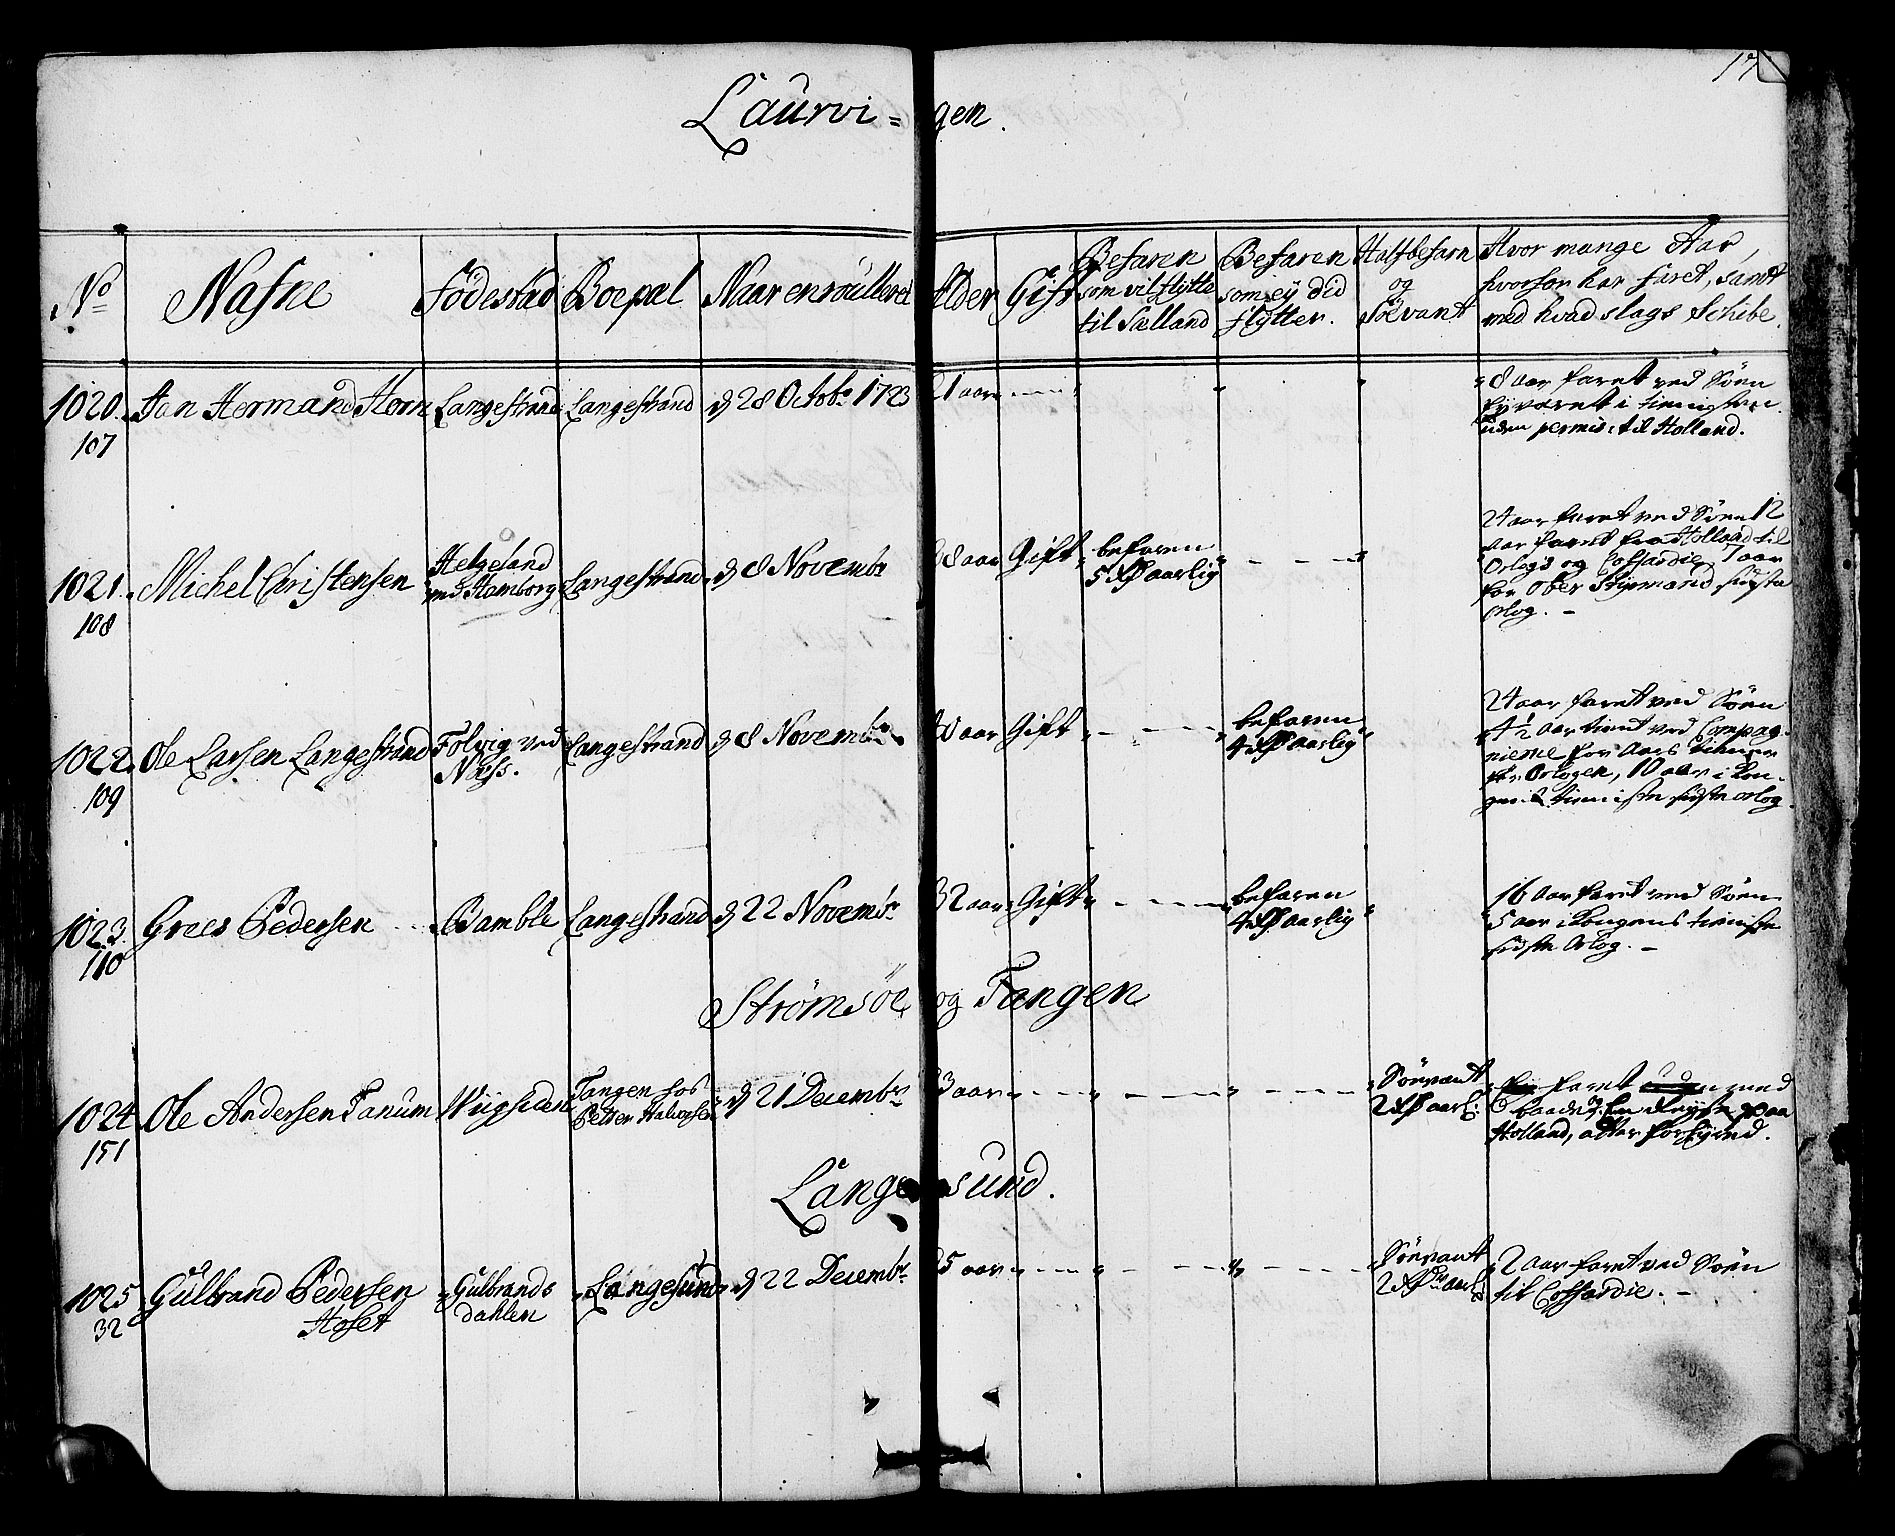 17
Laurvi=gen.
No Nafne Födestad Boepæl Naar enroulleret Alder Gift Befaren som vil flytte til Sælland Befaren som ey did flytter. Halfbefarn og Söevant Hvor mange Aar, hvorfor har faret, samt med hvad slags Schibe.
1020. Jan Hermand Horn Langestrand Langestrand d 28 Octobr 1723 21 aar
8 aar faret ved Söen
uden permis: til Holland.
107
1021. Michel Christensen Helgeland ved Hamborg Langestrand d 8 Novembr 8 aar Gift befaren 5 aarlig
24 aar faret ved Söen 12
aar faret fra Holland til
Orlogs og Coffardie, 7 aar
for Ober Styrmand sidste
Orlog.
108
1022. Ole Larsen Langestrand Folvig ved Næss. Langestrand d 8 Novembr 40 aar Gift befaren 4 aarlig
24 aar faret ved Söen
4½ aar tient ved Compag-
nierne for
Orlogen, 10 aar i Kon-
gens tieniste sidste orlog
109
1023. Grees Pedersen Bamble Langestrand d 22 Novembr 32 aar Gift befaren 4 aarlig
16 aar faret ved Söen
5 aar i Kongens tieniste
sidste Orlog.
110
Strömsöe og Tangen
1024 Ole Andersen Tanum Wiigsiden Tangen hos Petter Halvorsen d 21 Decembr 3 aar Söevant 2 aarl:
faret med
baads og En Reyse paa
Holland,
151
Langesund.
1025 Gulbrand Pedersen Hoset Gulbrands dahlen Langesund d 22 Decembr 25 aar Söevant 2 aarl
2 aar faret ved Söen
til Coffardie.
32